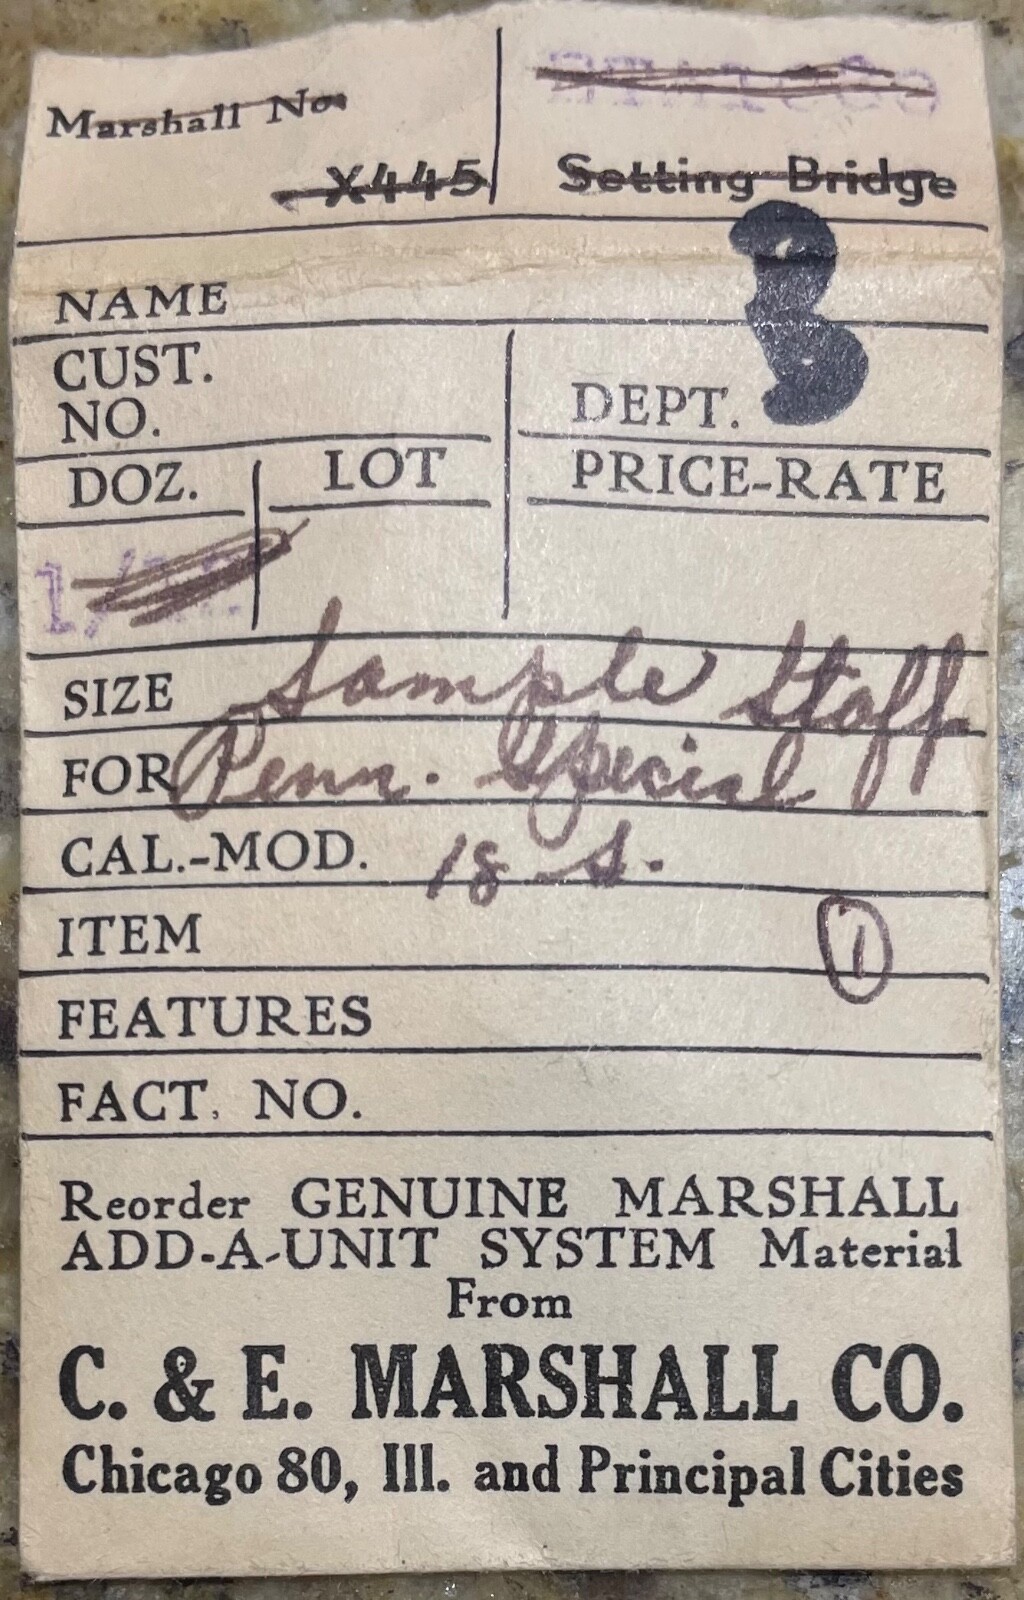 Marshall No.
X445
Setting Bridge
NAME
CUST.
NO.
DEPT.
DOZ.
LOT
PRICE-RATE
SIZE Sample Staff
FOR Penn. Special
CAL.-MOD. 18 s.
ITEM 1
FEATURES
FACT. NO.
Reorder GENUINE MARSHALL
ADD-A-UNIT SYSTEM Material
From
C. & E. MARSHALL CO.
Chicago 80, Ill. and Principal Cities